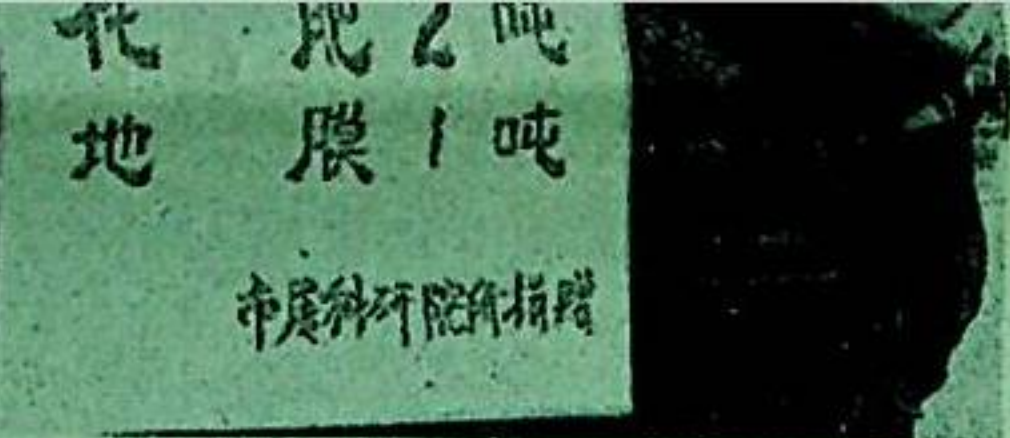 化 肥 2 吨
地 膜 1 吨
市属科研院所捐赠